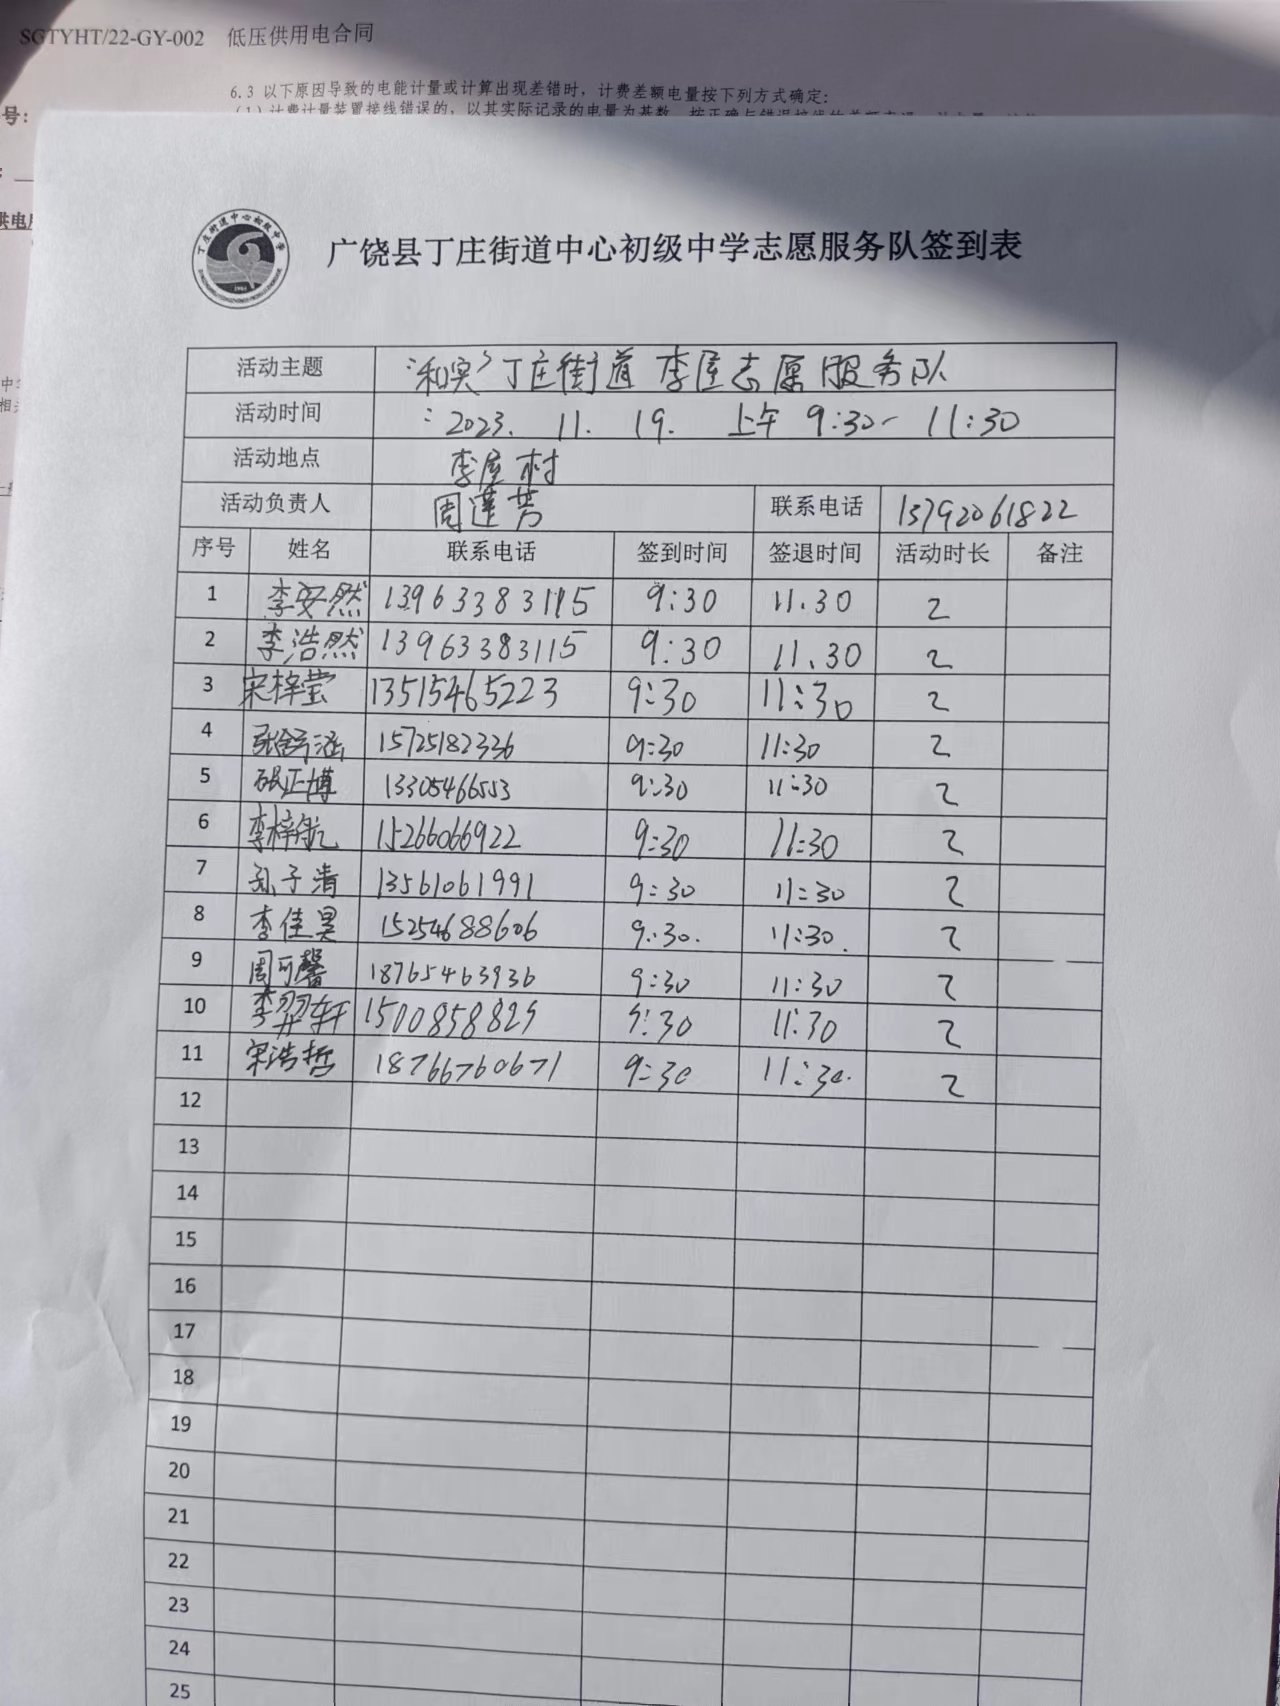 SGTYHT/22-GY-002 低压供用电合同
6.3 以下原因导致的电能计量或计算出现差错时，计费差额电量按下列方式确定：
（1）计费计量装置接线错误的，以其实际记录的电量为基数，按正确与错误接线的
号：
供电
丁庄街道中心初级中学
广饶县丁庄街道中心初级中学志愿服务队签到表
活动主题 丁庄街道李屋志愿服务队
活动时间 ：2023. 11. 19. 上午 9:30- 11:30
活动地点 李屋村
活动负责人 周莲芳 联系电话 13792061822
序号 姓名 联系电话 签到时间 签退时间 活动时长 备注
1 李安然 13963383115 9:30 11.30 2
2 李浩然 13963383115 9:30 11.30 2
3 宋梓莹 13515465223 9:30 11:30 2
4 张舒涵 15725182336 9:30 11:30 2
5 张正博 13305466553 9:30 11:30 2
6 李梓航 15266066922 9:30 11:30 2
7 孙子清 13561061991 9:30 11:30 2
8 李佳昊 15254688606 9:30. 11:30. 2
9 周可馨 18765463936 9:30 11:30 2
10 李羿轩 1500858829 9:30 11:30 2
11 宋浩哲 18766760671 9:30 11:30. 2
12
13
14
15
16
17
18
19
20
21
22
23
24
25